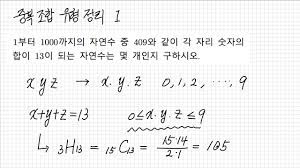 중복 조합 유형 정리 I
1부터 1000까지의 자연수 중 409와 같이 각 자리 숫자의
합이 13이 되는 자연수는 몇 개인지 구하시오.
x y z → x. y. z 0, 1, 2, ⋯, 9
x+y+z=13 0≤x.y.z≤9
↳ ₃H₁₃ = ₁₅C₁₃ = 15·14/2·1 = 105